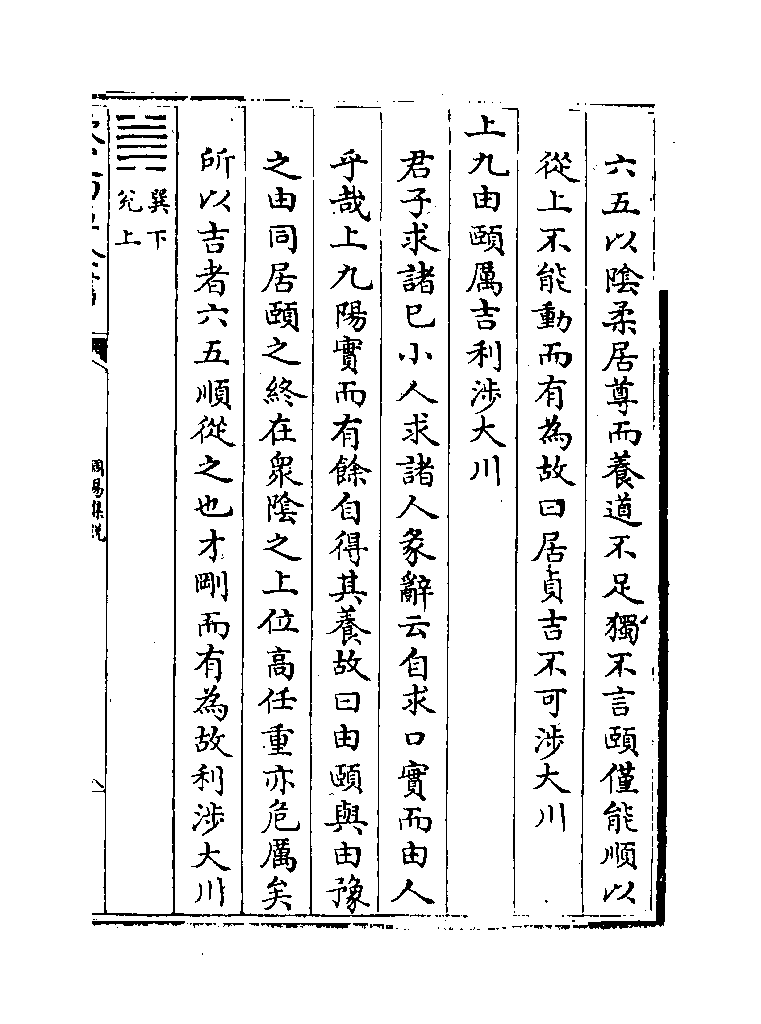 六五以陰柔居尊而養道不足獨不言頤僅能順以
從上不能動而有為故曰居貞吉不可涉大川
上九由頤厲吉利涉大川
君子求諸己小人求諸人彖辭云自求口實而由人
乎哉上九陽實而有餘自得其養故曰由頤與由豫
之由同居頤之終在衆陰之上位高任重亦危厲矣
所以吉者六五順從之也才剛而有為故利涉大川
巽下
兊上
周易集說